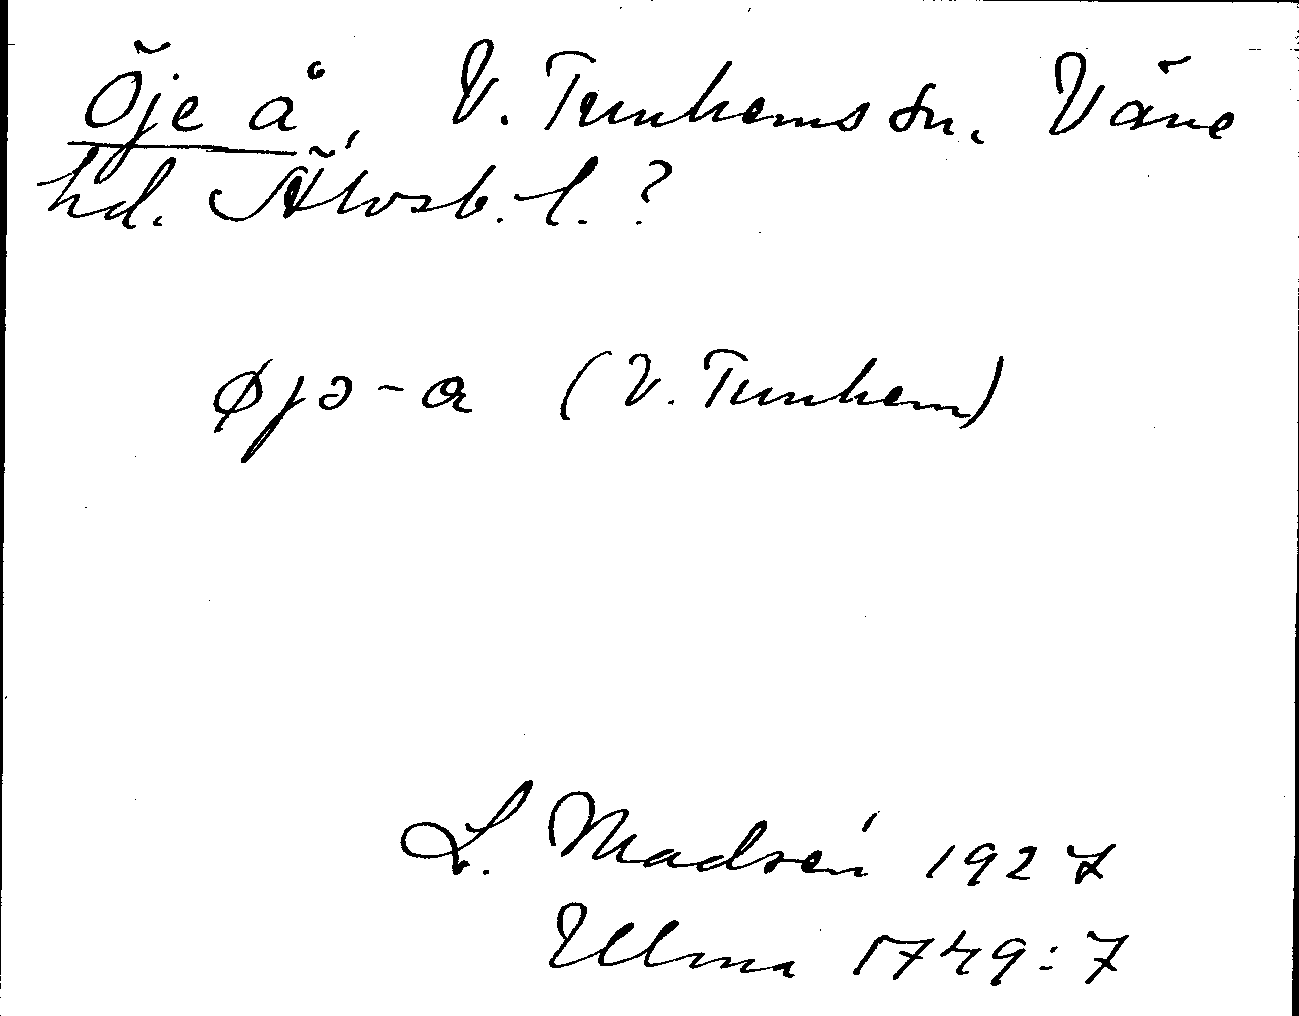 Öje å, V. Tunhems sn. Väne
hd. Älvsb. l. ?
øjə-a (V. Tunhem)
L. Madsén 1927
Ulma 1749:7